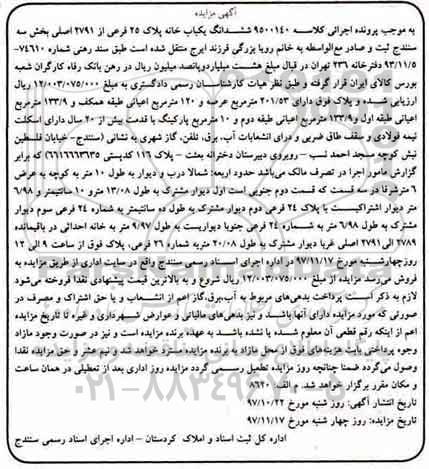 آگهی مزایده
به موجب پرونده اجرائی کلاسه ۹۵۰۰۱۴۰ ششدانگ یکباب خانه پلاک ۲۵ فرعی از ۲۷۹۱ اصلی بخش سه
سنندج ثبت و صادر مع‌الواسطه به خانم رویا بزرگی فرزند ایرج منتقل شده است طبق سند رهنی شماره ۷۴۶۱۰-
۹۳/۱۱/۵ دفترخانه ۲۳۶ تهران در قبال مبلغ هشت میلیاردوپانصد میلیون ریال در رهن بانک رفاه کارگران شعبه
بورس کالای ایران قرار گرفته و طبق نظر هیات کارشناسان رسمی دادگستری به مبلغ ۱۲/۰۰۳/۰۷۵/۰۰۰ ریال
ارزیابی شده و پلاک فوق دارای ۲۰۱/۵۳ مترمربع عرصه و ۱۲۰ مترمربع اعیانی طبقه همکف و ۱۳۳/۹ مترمربع
اعیانی طبقه اول و ۱۳۳/۹ مترمربع اعیانی طبقه دوم و ۱۰ مترمربع پارکینگ با قدمت بیش از ۲۰ سال دارای اسکلت
نیمه فولادی و سقف طاق ضربی و درای انشعابات آب، برق، تلفن، گاز شهری به نشانی (سنندج- خیابان فلسطین
نبش کوچه مسجد احمد نسب – روبروی دبیرستان دخترانه بعثت – پلاک ۱۱۶ کدپستی ۶۶۱۶۶۱۳۶۳۵) که برابر
گزارش مامور اجرا در تصرف مالک می‌باشد حدود اربعه: شمالا درب و دیوار به طول ۱۰ متر به کوچه به عرض
۶ مترشرقا در سه قسمت که قسمت دوم جنوبی است اول دیوار مشترک به طول ۱۳/۰۸ مترو ۱۰ سانتیمتر و ۶/۹۸
متر دیوار اشتراکیست با پلاک ۲۴ فرعی دوم دیوار مشترک به طول ده سانتیمتر به شماره ۲۴ فرعی سوم دیوار
مشترک به طول ۶/۹۸ متر به شماره ۲۴ فرعی جنوبا دیواریست به طول ۹/۹۰ متر به خانه احداثی در باقیمانده
۲۷۸۹ الی ۲۷۹۱ اصلی غربا دیوار مشترک به طول ۲۰/۰۸ متربه شماره ۲۶ فرعی، پلاک فوق از ساعت ۹ الی ۱۲
روزچهارشنبه مورخ ۹۷/۱۱/۱۷ در اداره اجرای اسناد رسمی سنندج واقع در سایت اداری از طریق مزایده به
فروش می‌رسد مزایده از مبلغ ۱۲/۰۰۳/۰۷۵/۰۰۰ ریال شروع و به بالاترین قیمت پیشنهادی نقدا فروخته می‌شود
لازم به ذکر است پرداخت بدهی‌های مربوط به آب،برق،گاز اعم از انشعاب و یا حق اشتراک و مصرف در
صورتی که مورد مزایده دارای آنها باشد و نیز بدهی‌های مالیاتی و عوارض شهرداری و غیره تا تاریخ مزایده
اعم از اینکه رقم قطعی آن معلوم شده یا نشده باشد به عهده برنده مزایده است و نیز در صورت وجود مازاد
وجوه پرداختی بابت هزینه‌های فوق از محل مازاد به برنده مزایده مسترد خواهد شد و نیم عشر و حق مزایده نقدا
وصول می‌گردد ضمنا چنانچه روز مزایده تعطیل رسمی گردد مزایده روز اداری بعد از تعطیلی در همان ساعت
و مکان مقرر برگزار خواهد شد. م الف: ۸۶۲۰
تاریخ انتشار آگهی: روز شنبه مورخ ۹۷/۱۰/۲۲
تاریخ مزایده: روز چهار شنبه مورخ ۹۷/۱۱/۱۷
اداره کل ثبت اسناد و املاک کردستان – اداره اجرای اسناد رسمی سنندج